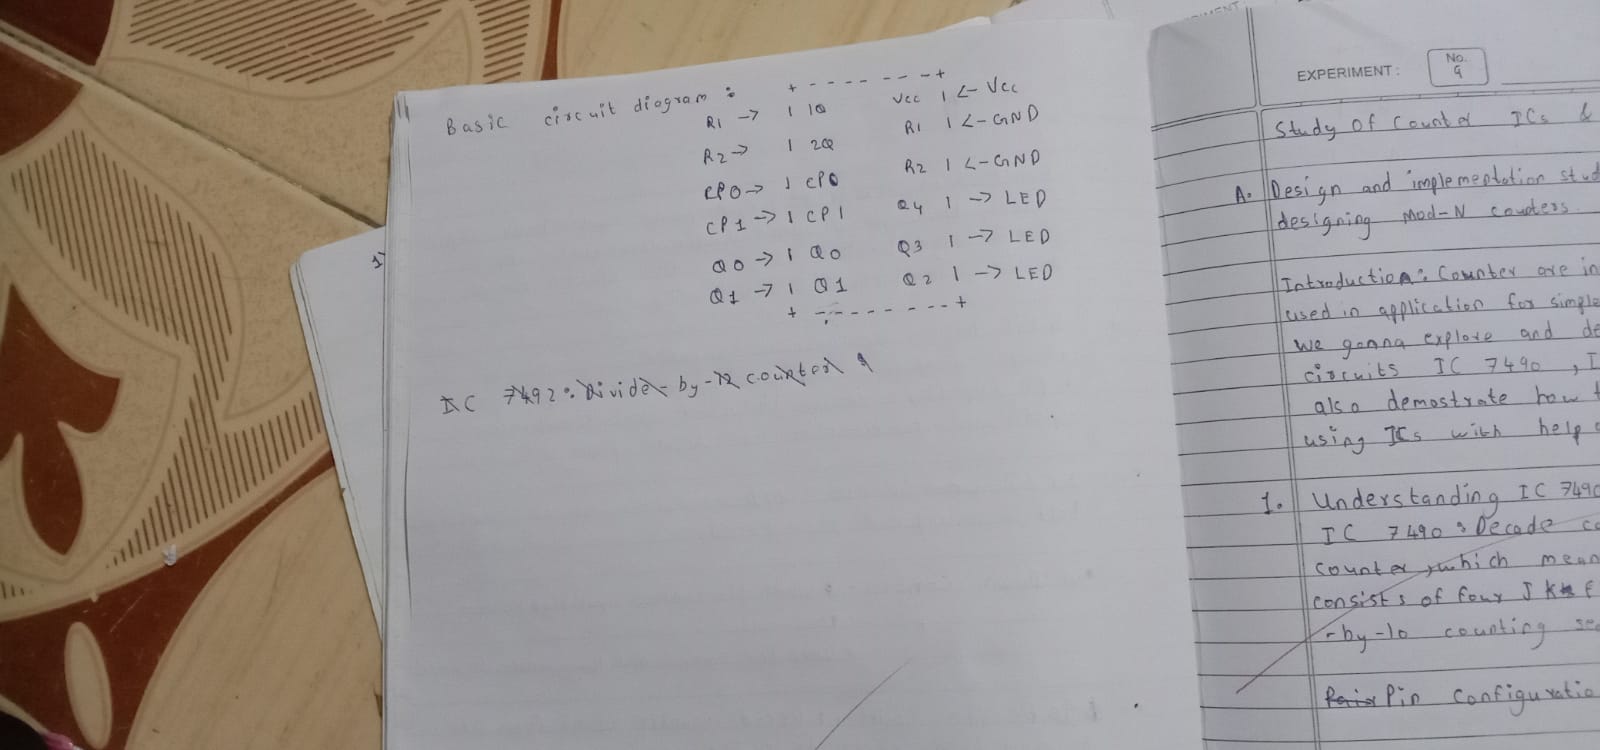 Basic circuit diagram :
+ - - - - - - - - +
R1 -> | 1Q Vcc | <- Vcc
R2 -> | 2Q R1 | <- GND
CP0 -> | CP0 R2 | <- GND
CP1 -> | CP1 Q4 | -> LED
Q0 -> | Q0 Q3 | -> LED
Q1 -> | Q1 Q2 | -> LED
+ - - - - - - - - +
IC 7492 : Divide-by-12 counter
1)
EXPERIMENT : No. 9
Study Of Counter ICs &
A. Design and implementation stud
designing Mod-N counters.
Introduction : Counter are in
used in application for simple
we gonna explore and de
circuits IC 7490 , I
also demostrate how t
using ICs with help o
1. Understanding IC 7490
IC 7490 : Decade co
counter, which mean
consists of four J K F
-by-10 counting se
Pin Configuratio